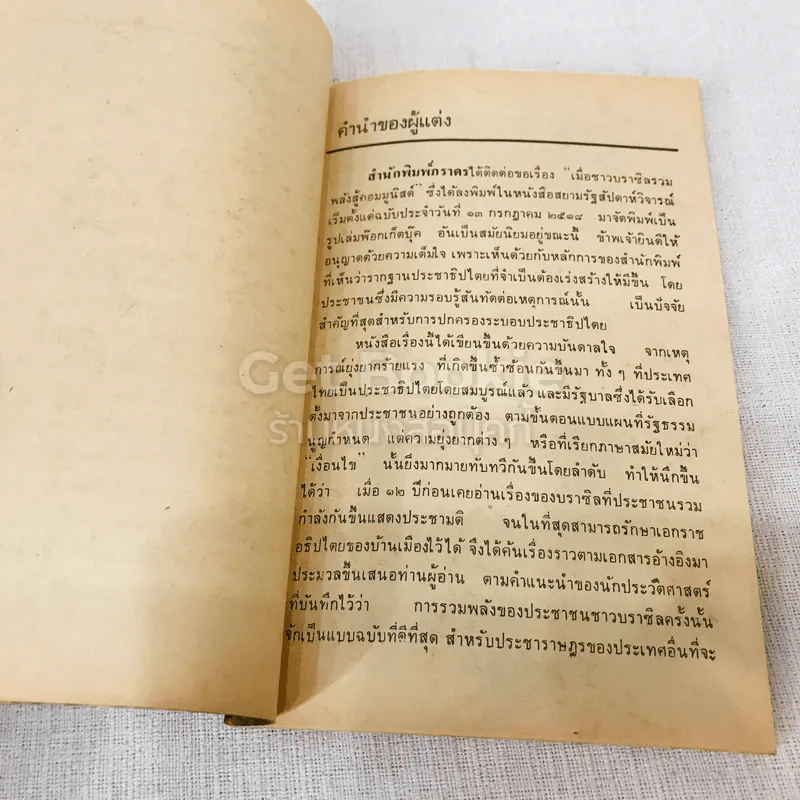 คำนำของผู้แต่ง
สำนักพิมพ์ภราดรได้ติดต่อขอเรื่อง "เมื่อชาวบราซิลรวม
พลังสู้คอมมูนิสต์" ซึ่งได้ลงพิมพ์ในหนังสือสยามรัฐสัปดาห์วิจารณ์
เริ่มตั้งแต่ฉบับประจำวันที่ ๑๓ กรกฎาคม ๒๕๑๘ มาจัดพิมพ์เป็น
รูปเล่มพ๊อกเก็ตบุ๊ค อันเป็นสมัยนิยมอยู่ขณะนี้ ข้าพเจ้ายินดีให้
อนุญาตด้วยความเต็มใจ เพราะเห็นด้วยกับหลักการของสำนักพิมพ์
ที่เห็นว่ารากฐานประชาธิปไตยที่จำเป็นต้องเร่งสร้างให้มีขึ้น โดย
ประชาชนซึ่งมีความรอบรู้สันทัดต่อเหตุการณ์นั้น เป็นปัจจัย
สำคัญที่สุดสำหรับการปกครองระบอบประชาธิปไตย
หนังสือเรื่องนี้ได้เขียนขึ้นด้วยความบันดาลใจ จากเหตุ
การณ์ยุ่งยากร้ายแรง ที่เกิดขึ้นซ้ำซ้อนกันขึ้นมา ทั้ง ๆ ที่ประเทศ
ไทยเป็นประชาธิปไตยโดยสมบูรณ์แล้ว และมีรัฐบาลซึ่งได้รับเลือก
ตั้งมาจากประชาชนอย่างถูกต้อง ตามขั้นตอนแบบแผนที่รัฐธรรม
นูญกำหนด แต่ความยุ่งยากต่าง ๆ หรือที่เรียกภาษาสมัยใหม่ว่า
"เงื่อนไข" นั้นยิ่งมากมายทับทวีกันขึ้นโดยลำดับ ทำให้นึกขึ้น
ได้ว่า เมื่อ ๑๒ ปีก่อนเคยอ่านเรื่องของบราซิลที่ประชาชนรวม
กำลังกันขึ้นแสดงประชามติ จนในที่สุดสามารถรักษาเอกราช
อธิปไตยของบ้านเมืองไว้ได้ จึงได้ค้นเรื่องราวตามเอกสารอ้างอิงมา
ประมวลขึ้นเสนอท่านผู้อ่าน ตามคำแนะนำของนักประวัติศาสตร์
ที่บันทึกไว้ว่า การรวมพลังของประชาชนชาวบราซิลครั้งนั้น
จักเป็นแบบฉบับที่ดีที่สุด สำหรับประชาราษฎรของประเทศอื่นที่จะ